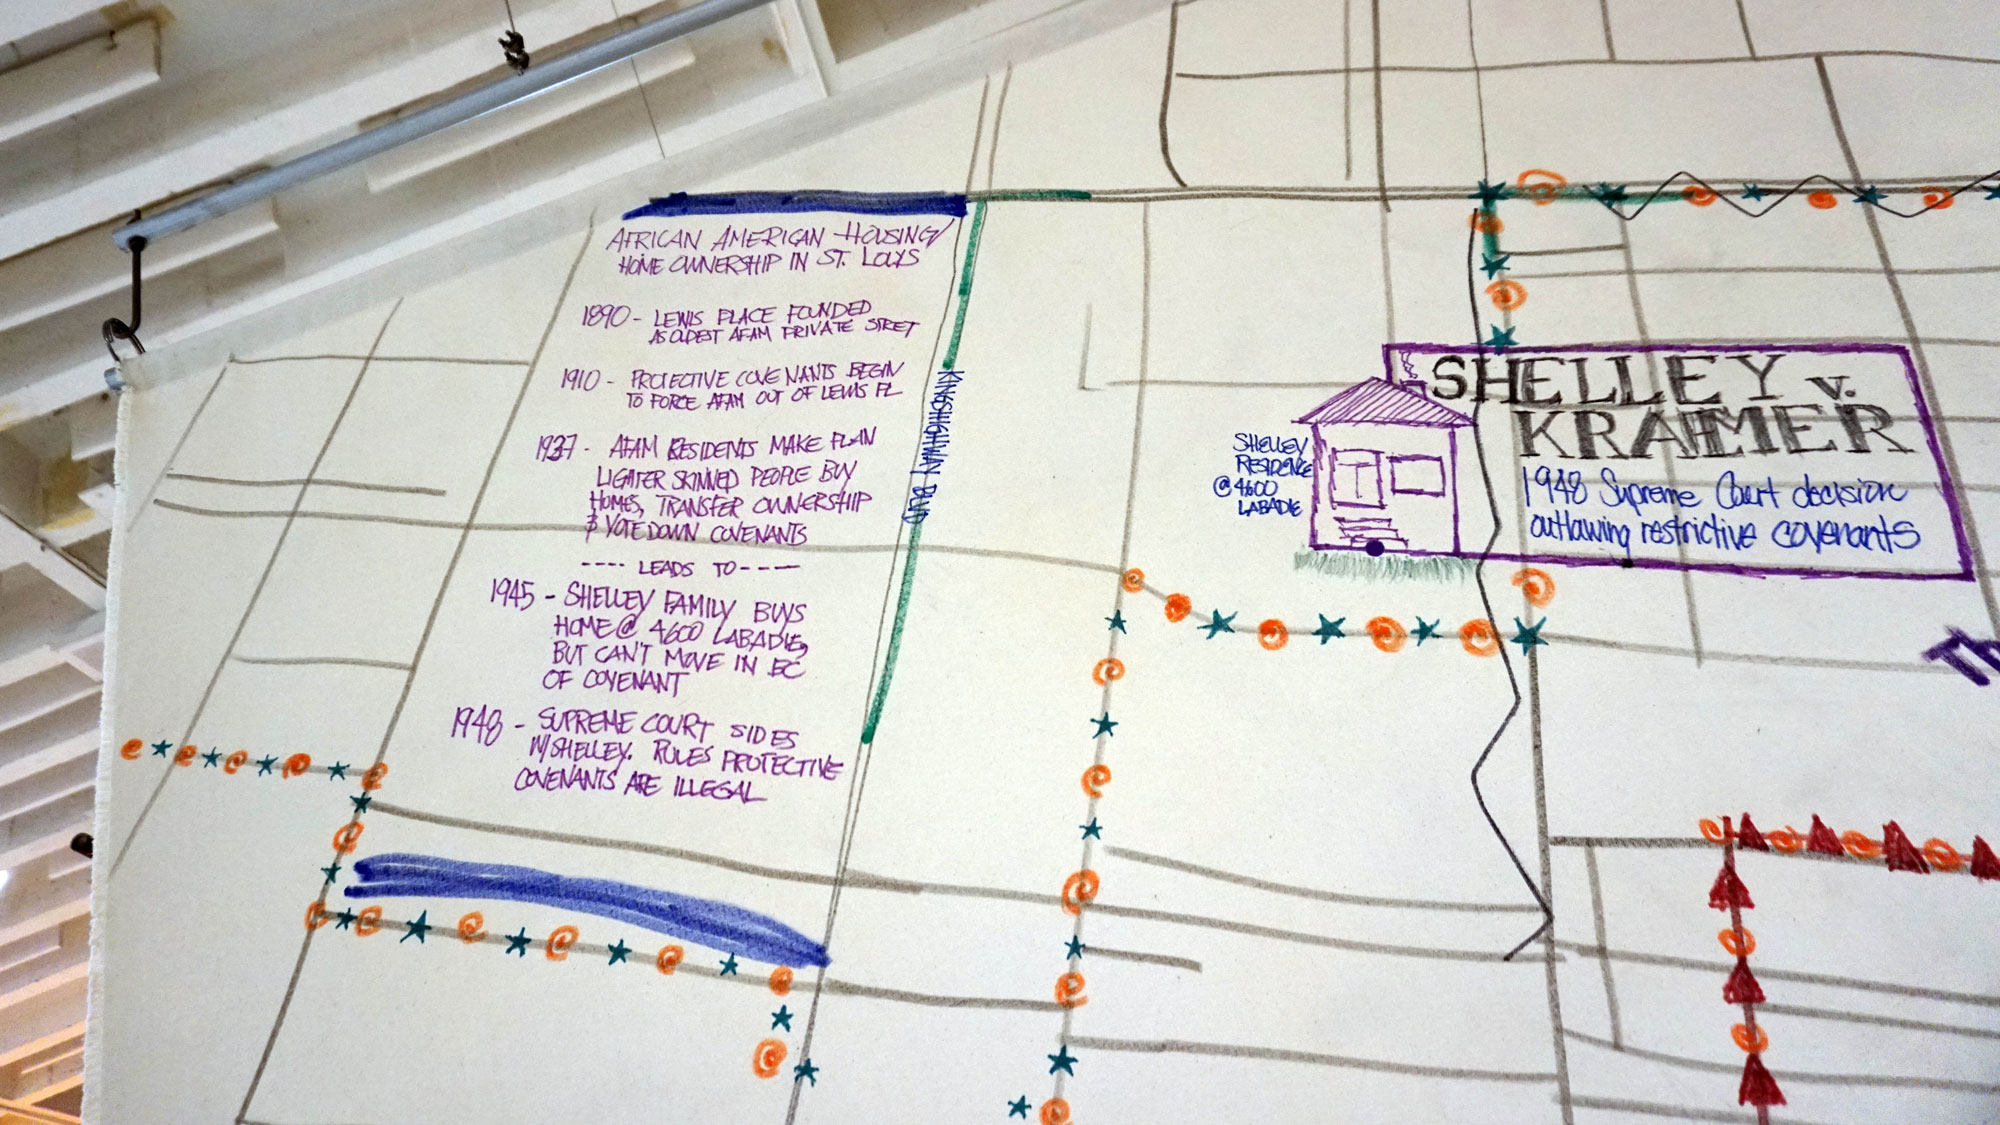 AFRICAN AMERICAN HOUSING/
HOME OWNERSHIP IN ST. LOUIS
1890 - LEWIS PLACE FOUNDED
AS OLDEST AFAM PRIVATE STREET
1910 - PROTECTIVE COVENANTS BEGIN
TO FORCE AFAM OUT OF LEWIS PL
1937 - AFAM RESIDENTS MAKE PLAN
LIGHTER SKINNED PEOPLE BUY
HOMES, TRANSFER OWNERSHIP
& VOTE DOWN COVENANTS
---- LEADS TO ----
1945 - SHELLEY FAMILY BUYS
HOME @ 4600 LABADIE,
BUT CAN'T MOVE IN BC
OF COVENANT
1948 - SUPREME COURT SIDES
W/SHELLEY. RULES PROTECTIVE
COVENANTS ARE ILLEGAL
KINGSHIGHWAY BLVD
SHELLEY
RESIDENCE
@ 4600
LABADIE
SHELLEY v.
KRAMER
1948 Supreme Court decision
outlawing restrictive covenants